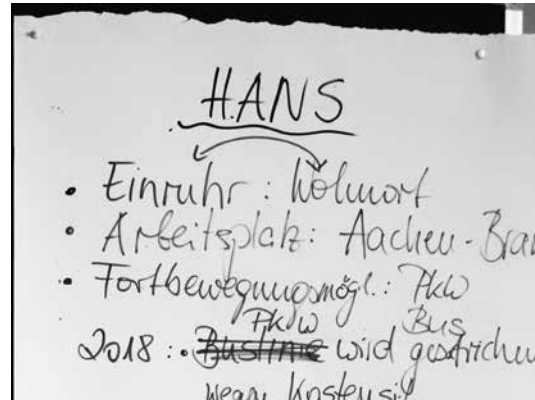 HANS
• Einruhr: Wohnort
• Arbeitsplatz: Aachen-Bran
• Fortbewegungsmögl.: PKW
PKW Bus
2018: • Buslinie wird gestrichen
wegen Kostensi